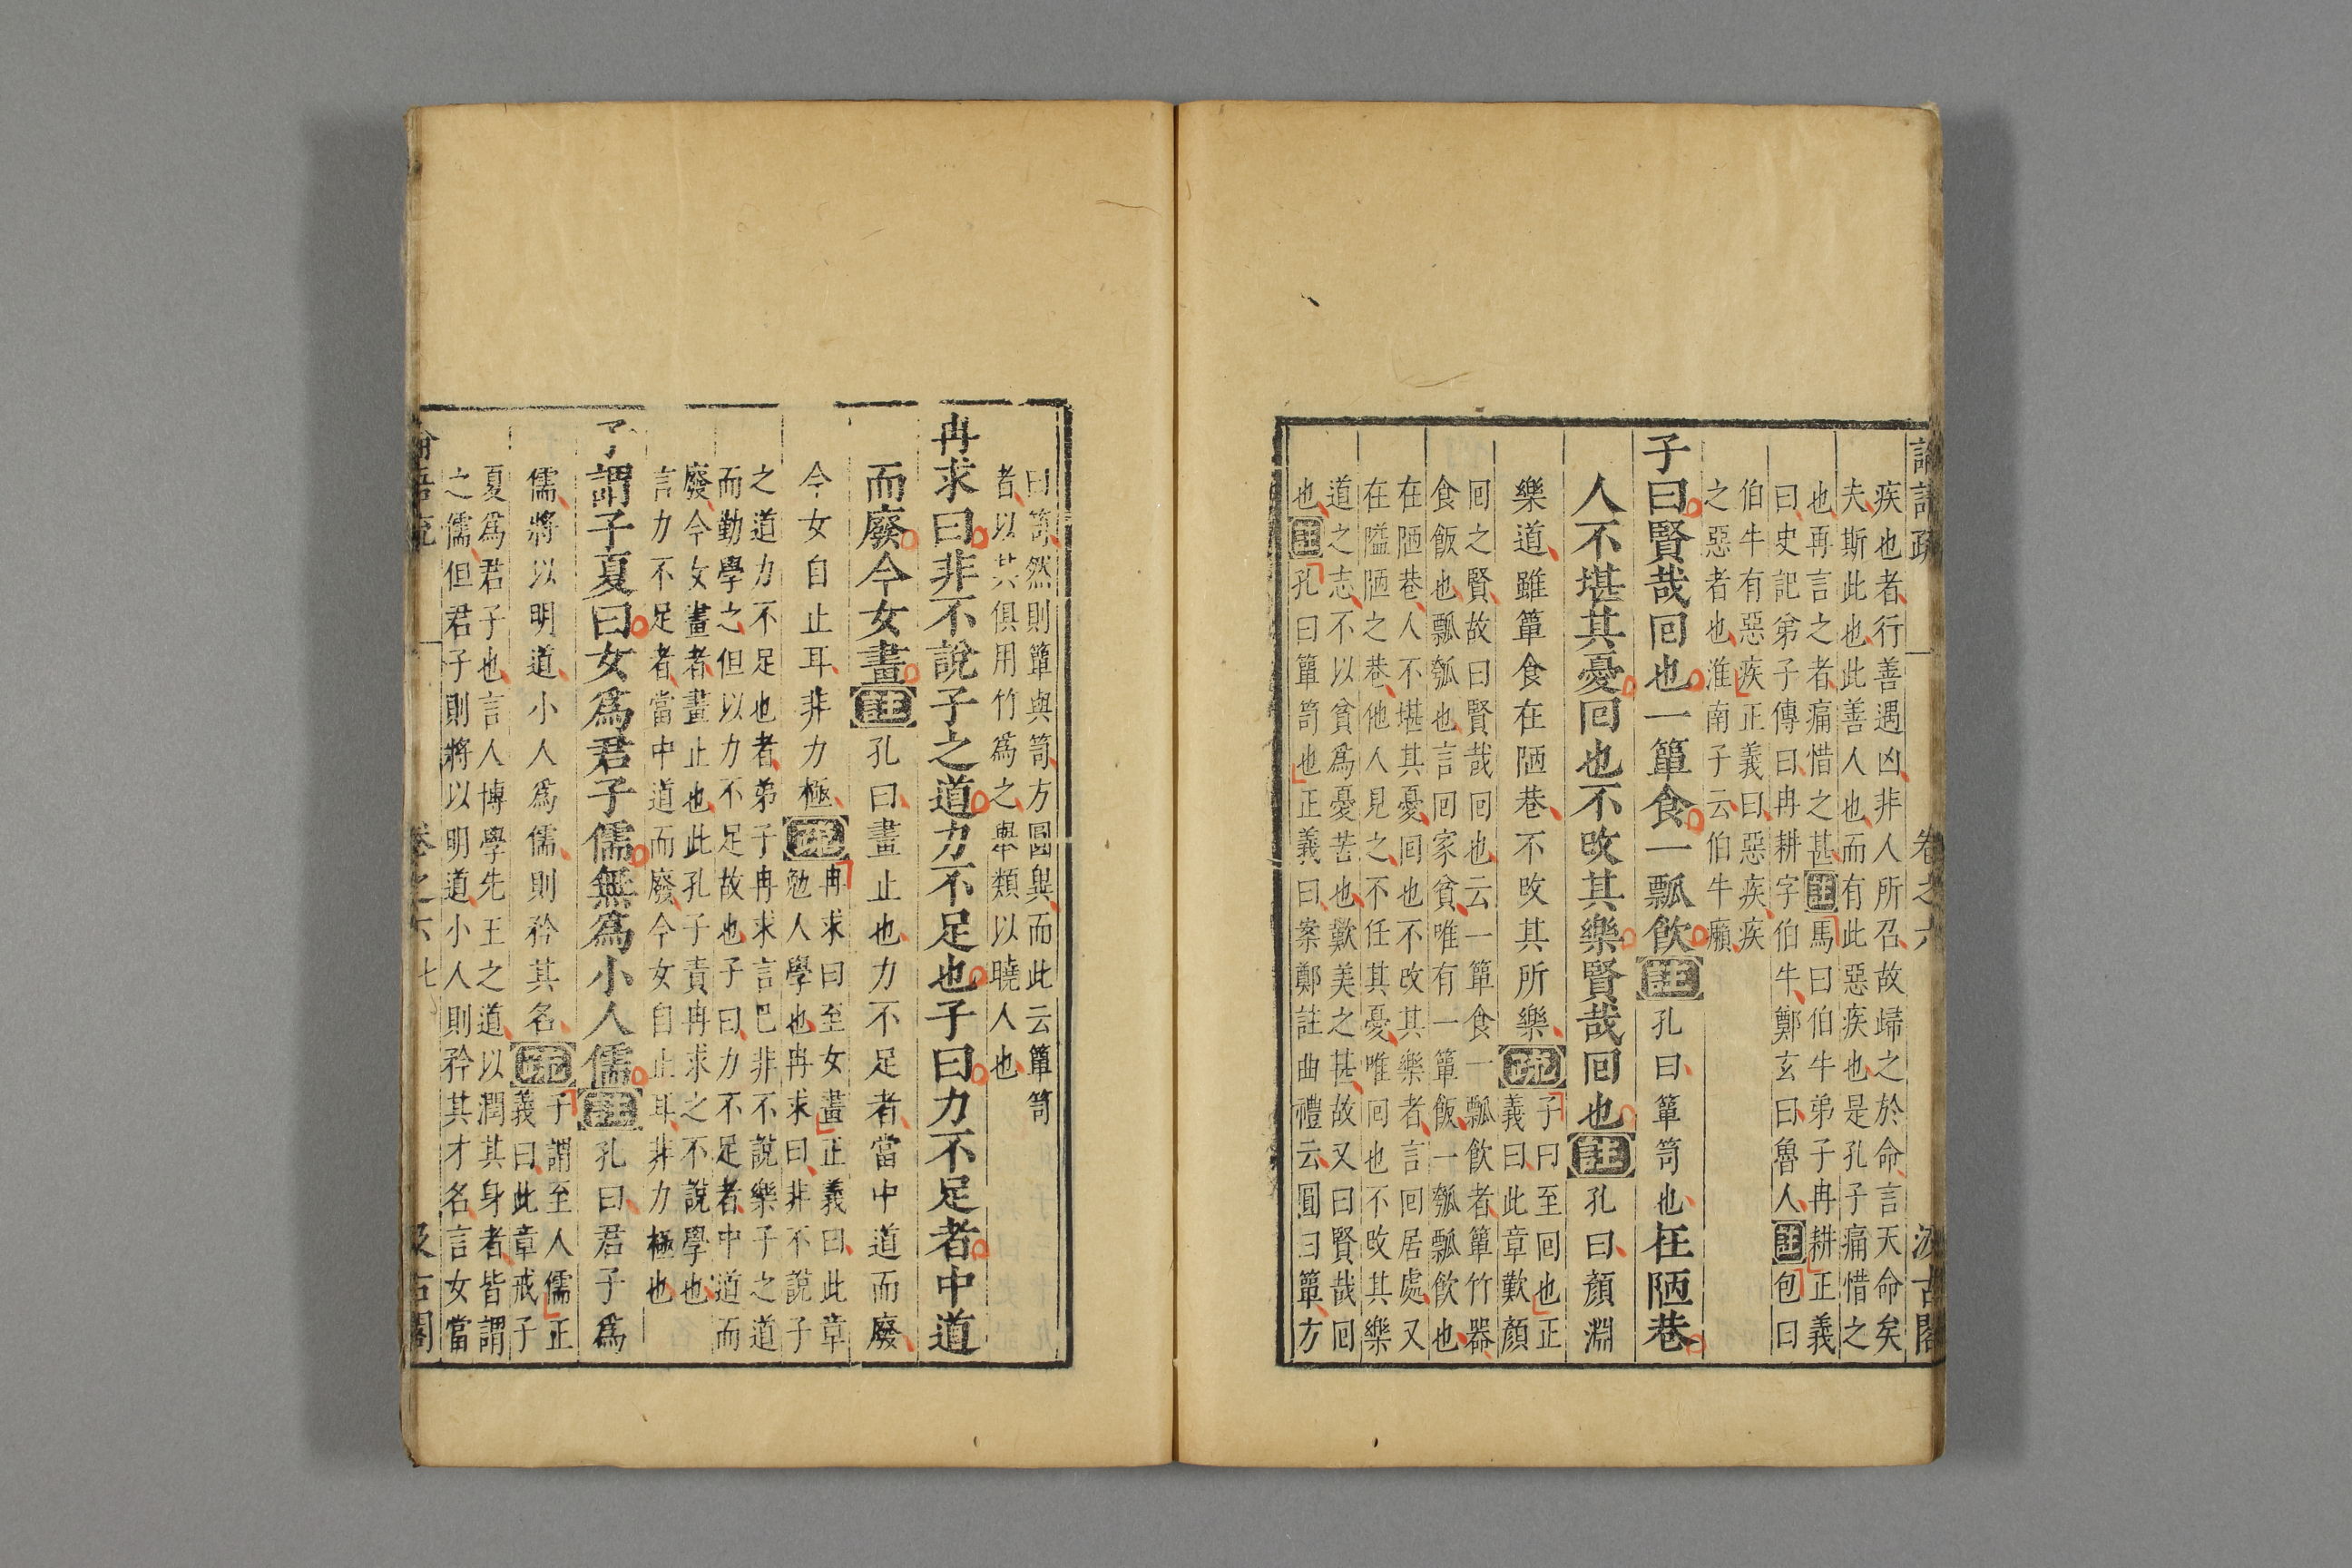 疏 卷之六 汲古閣
疾也者行善遇凶非人所召故歸之於命言天命矣
夫斯此也此善人也而有此惡疾也是孔子痛惜之
也再言之者痛惜之甚註馬曰伯牛弟子冉耕正義
曰史記弟子傳曰冉耕字伯牛鄭玄曰魯人註包曰
伯牛有惡疾正義曰惡疾疾
之惡者也淮南子云伯牛癩
子曰賢哉囘也一簞食一瓢飲註孔曰簞笥也在陋巷
人不堪其憂囘也不攺其樂賢哉囘也註孔曰顏淵
樂道雖簞食在陋巷不攺其所樂疏
子曰至囘也正
義曰此章歎顏
囘之賢故曰賢哉囘也云一簞食一瓢飲者簞竹器
食飯也瓢瓠也言囘家貧唯有一簞飯一瓠瓢飲也
在陋巷人不堪其憂囘也不改其樂者言囘居處又
在隘陋之巷他人見之不任其憂唯囘也不攺其樂
道之志不以貧爲憂苦也歎美之甚故又曰賢哉囘
也註孔曰簞笥也正義曰案鄭註曲禮云圓曰簞方
曰笥然則簞與笥方圓異而此云簞笥
者以其俱用竹爲之舉類以曉人也
冉求曰非不說子之道力不足也子曰力不足者中道
而廢今女畫註孔曰畫止也力不足者當中道而廢
今女自止耳非力極疏
冉求曰至女畫正義曰此章
勉人學也冉求曰非不說子
之道力不足也者弟子冉求言巳非不說樂子之道
而勤學之但以力不足故也子曰力不足者中道而
廢今女畫者畫止也此孔子責冉求之不說學也
言力不足者當中道而廢今女自止耳非力極也
子謂子夏曰女爲君子儒無爲小人儒註孔曰君子爲
儒將以明道小人爲儒則矜其名疏
子謂至人儒正
義曰此章戒子
夏爲君子也言人博學先王之道以潤其身者皆謂
之儒但君子則將以明道小人則矜其才名言女當
卷之六 七